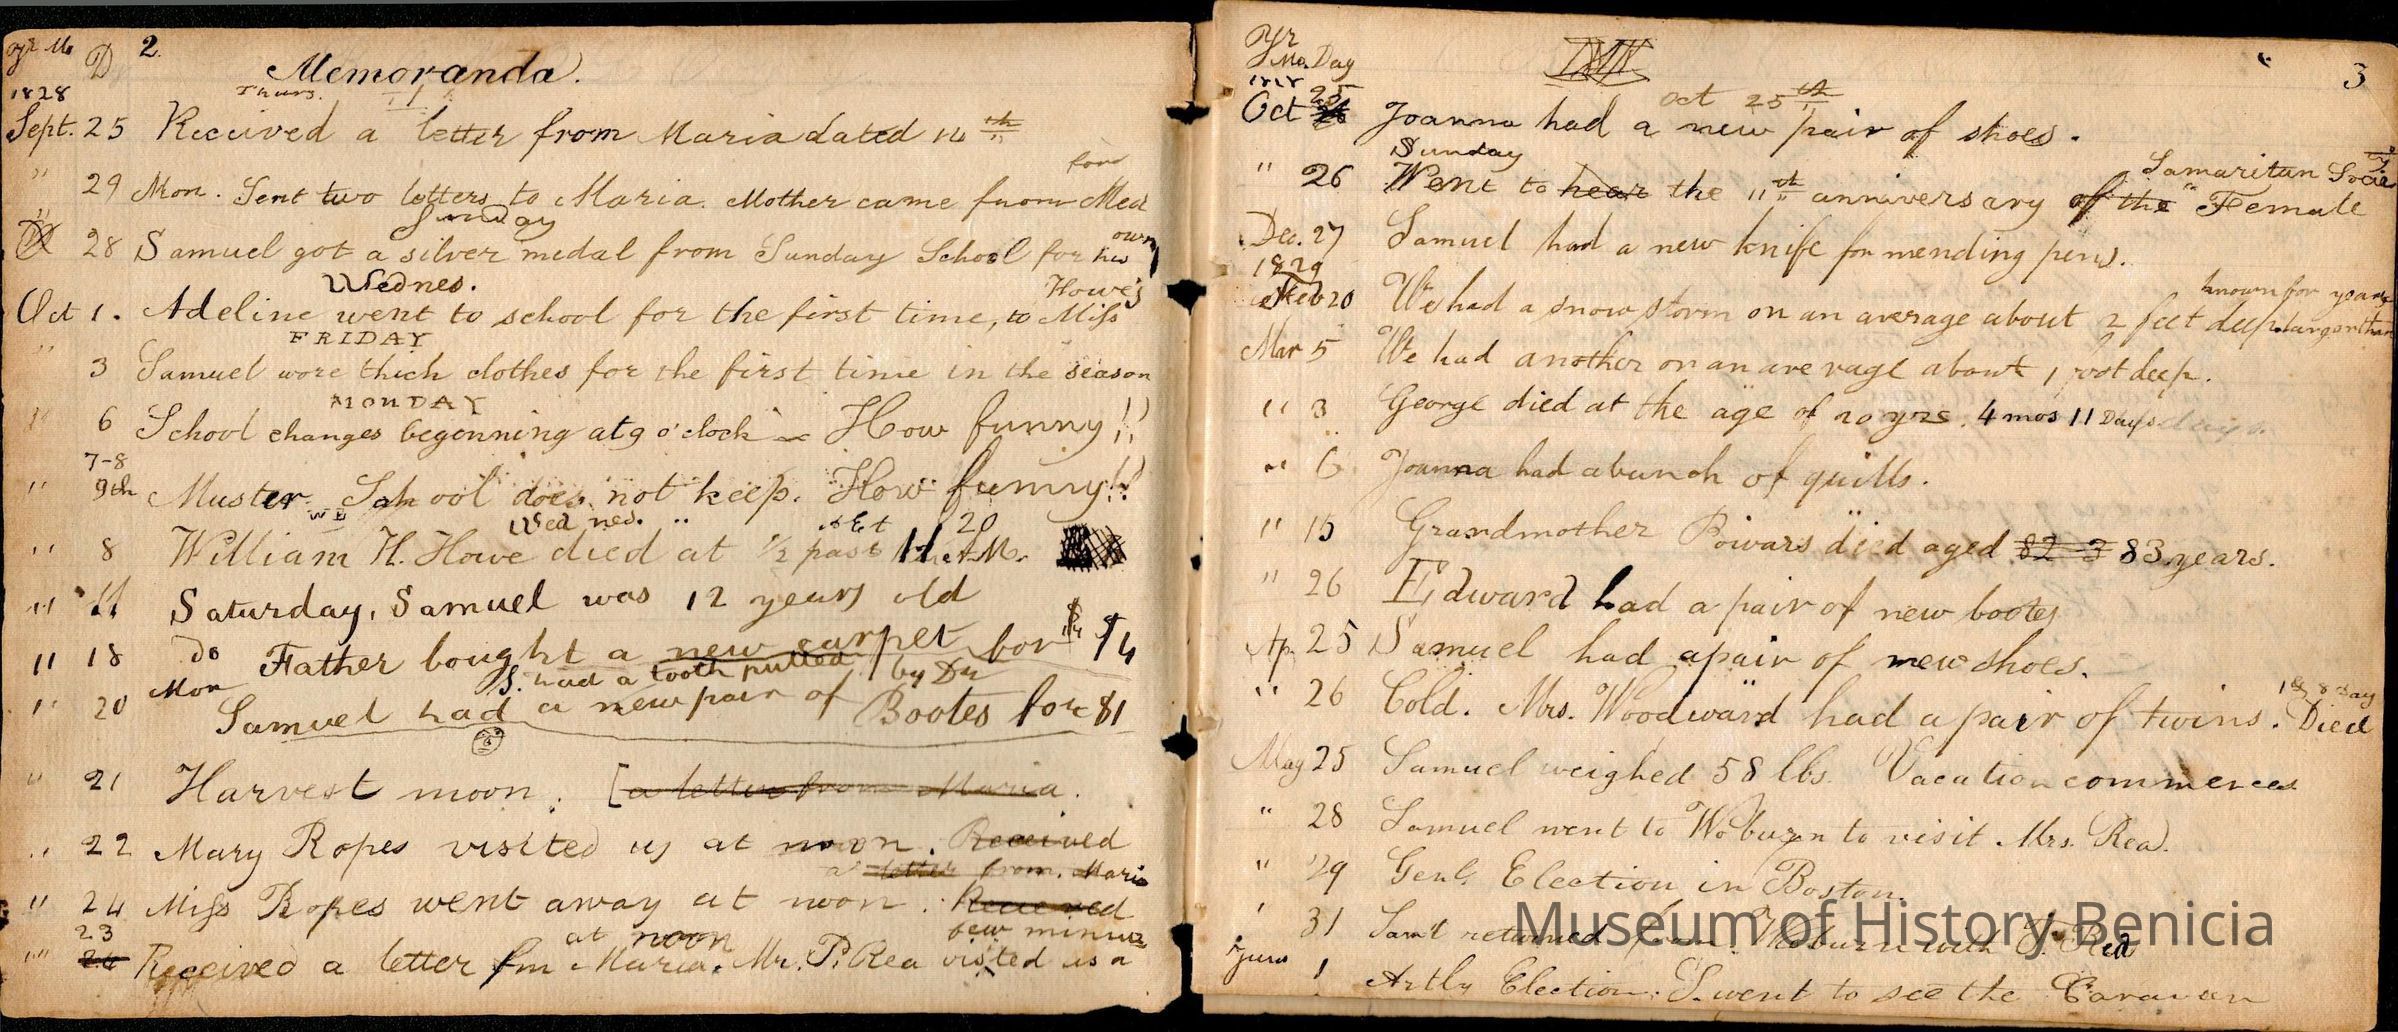 Yr Mo D 2
Memoranda.
1828 Thurs.
Sept. 25 Received a letter from Maria dated 14 th
ford
" 29 Mon. Sent two letters to Maria. Mother came from Med
Sunday
28 Samuel got a silver medal from Sunday School for his own
Wednes.
Howe's
Oct 1. Adeline went to school for the first time, to Miss
FRIDAY
" 3 Samuel wore thick clothes for the first time in the season
MONDAY
" 6 School changes beginning at 9 o'clock How funny!!
7-8
" 9th Muster School does not keep. How funny!!
WE Wednes. AEt 20
" 8 William H. Howe died at ½ past 11 A.M.
" 11 Saturday, Samuel was 12 years old
" 18 Do Father bought a new carpet for $
S. had a tooth pulled by Dr
" 20 Mon Samuel had a new pair of Bootes for $1
" 21 Harvest moon. [a letter from Maria.
" 22 Mary Ropes visited us at noon. Received
a letter from Maria
" 24 Miss Ropes went away at noon. Received
23 at noon few minutes
" 24 Received a letter fm Maria. Mr. P. Rea visited us a
Yr Mo. Day 3
1828 25 Oct 25 th
Oct 26 Joanna had a new pair of shoes.
Sunday Samaritan Society
" 26 Went to hear the 11 th anniversary of the "Female
Dec. 27 Samuel had a new knife for mending pens.
1829 known for years
Feb 20 We had a snow storm on an average about 2 feet deep. larger than
Mar 5 We had another on an average about 1 foot deep.
" 3 George died at the age of 20 yrs. 4 mos 11 Days days.
" 6 Joanna had a bunch of quills.
" 15 Grandmother Powars died aged 82 3 83 years.
" 26 Edward had a pair of new bootes
Ap. 25 Samuel had a pair of new shoes.
" 26 Cold. Mrs. Woodward had a pair of twins. Died
May 25 Samuel weighed 58 lbs. Vacation commences
" 28 Samuel went to Woburn to visit Mrs. Rea.
" 29 Genl. Election in Boston.
' 31 Saml returned from Woburn with Rea
June 1 Artly Election. S. went to see the Caravan
Museum of History Benicia